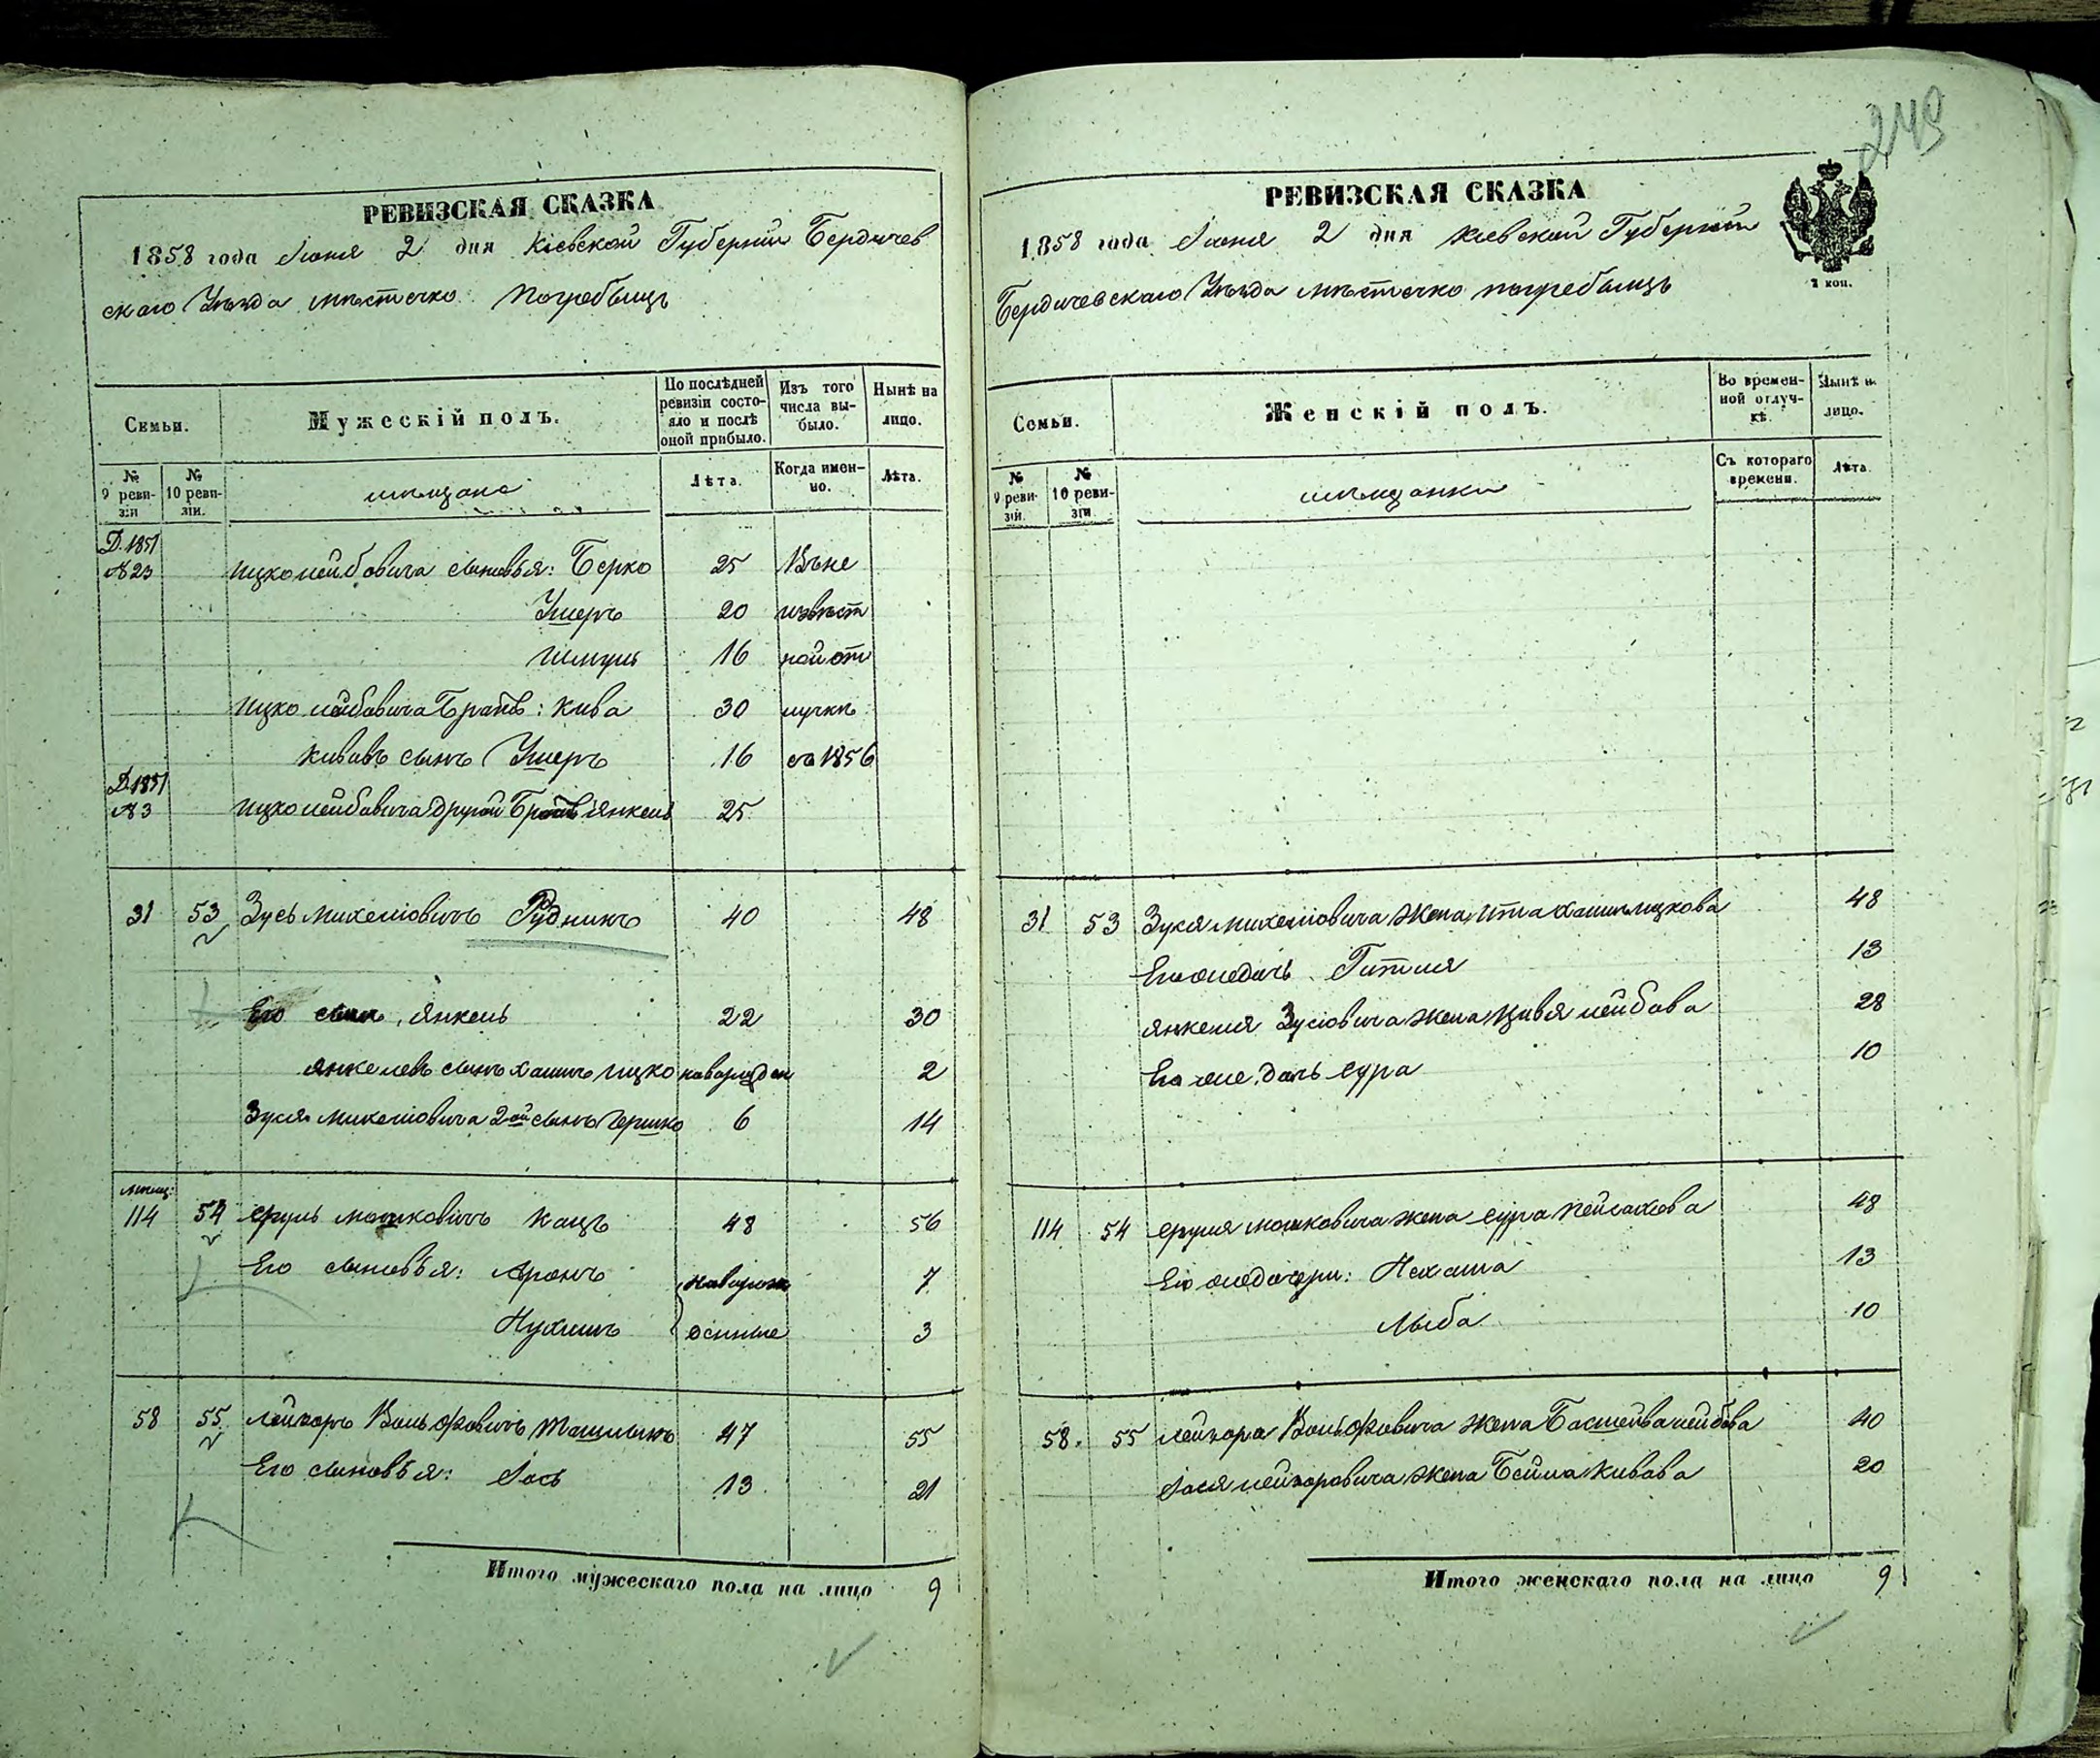 249
РЕВИЗСКАЯ СКАЗКА
1858 года Іюня 2 дня Кіевской Губерніи Бердичев
скаго Уѣзда мѣстечко Погребищъ
Семьи.
Мужескій полъ.
По послѣдней ревизіи состояло и послѣ оной прибыло.
Изъ того числа выбыло.
Нынѣ на лицо.
№ 9 ревизіи
№ 10 ревизіи.
мѣщане
Лѣта.
Когда именно.
Лѣта.
Д. 1851
№ 23 Ицко Лейбовича сыновья: Берко 25 Въ не
Ушеръ 20 извѣст
Шмуль 16 ной от
Ицко Лейбовича Братъ: Кива 30 лучкѣ
Кивовъ сынъ Ушеръ 16 съ 1856
Д. 1851
№ 3 Ицко Лейбовича другой Братъ Янкель 25
31 53 Зусь Михеліовичъ Рудникъ 40 48
Его сынъ, Янкель 22 30
Янкелевъ сынъ Хаимъ Ицко новорожден 2
Зуся Михеліовича 2ой сынъ Гершко 6 14
114 54 Сруль Мошковичъ Кацъ 48 56
Его сыновья: Аронъ новорож 7
Нухимъ денные 3
58 55 Лейзоръ Вольфовичъ 47 55
Его сыновья: Іось 13 21
Итого мужескаго пола на лицо 9
РЕВИЗСКАЯ СКАЗКА
1858 года Іюня 2 дня Кіевской Губерніи
Бердичевскаго Уѣзда мѣстечко Погребищъ
2 коп.
Семьи.
Женскій полъ.
Во временной отлучкѣ.
Нынѣ н. лицо.
№ 9 ревизій.
№ 10 ревизіи
мѣщанки
Съ котораго времени.
Лѣта.
31 53 Зуся Михеліовича жена Ита Хаимъ Ицкова 48
Его же дочь Гитля 13
Янкеля Зусіовича жена Цивья Лейбова 28
Его же дочь Сура 10
114 54 Сруля Мошковича жена Сура Пейсахова 48
Его же дочери: Нехама 13
Лыба 10
58. 55 Лейзора Вольфовича жена Басшейва Лейбова 40
Іося Лейзоровича жена Бейла Кивова 20
Итого женскаго пола на лицо 9